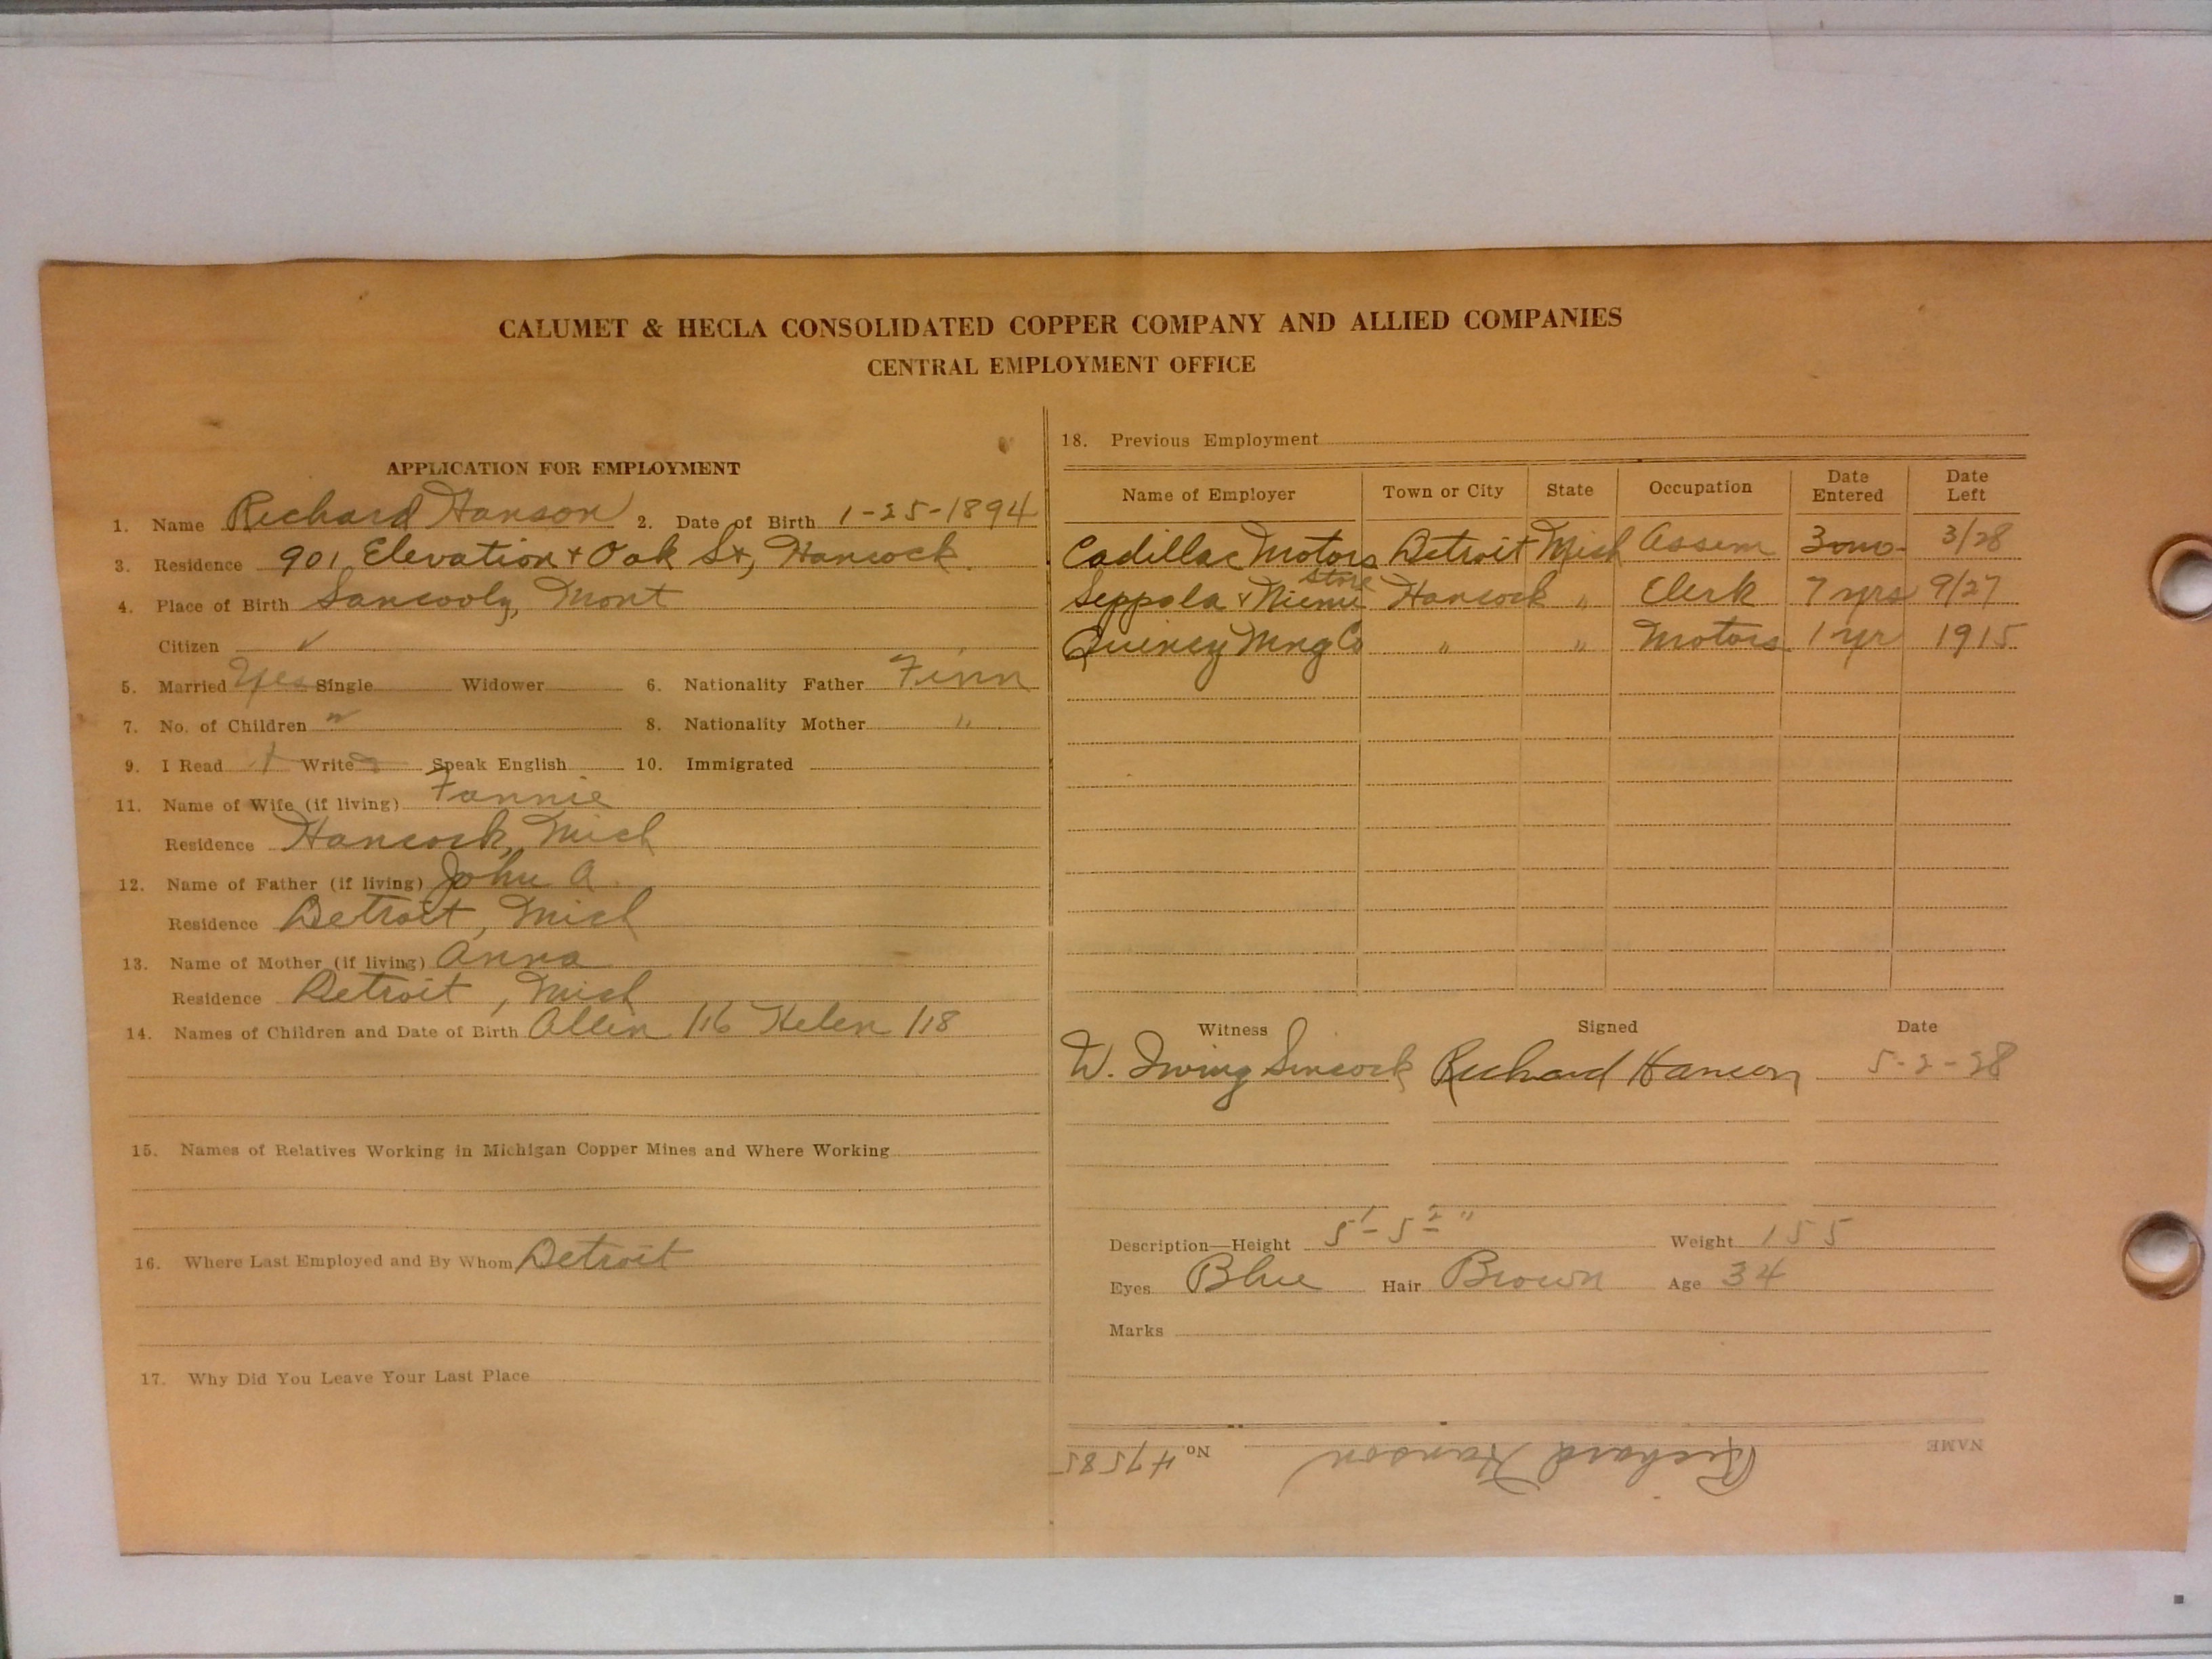 CALUMET & HECLA CONSOLIDATED COPPER COMPANY AND ALLIED COMPANIES
CENTRAL EMPLOYMENT OFFICE
APPLICATION FOR EMPLOYMENT
1. Name Richard Hanson 2. Date of Birth 1-25-1894
3. Residence 901 Elevation + Oak St, Hancock.
4. Place of Birth Mont
Citizen ✓
5. Married Yes Single Widower 6. Nationality Father Finn
7. No. of Children 8. Nationality Mother "
9. I Read Write Speak English 10. Immigrated
11. Name of Wife (if living) Fannie
Residence Hancock, Mich
12. Name of Father (if living) John A
Residence Detroit, Mich
13. Name of Mother (if living) Anna
Residence Detroit, Mich
14. Names of Children and Date of Birth Allen /16 Helen /18
15. Names of Relatives Working in Michigan Copper Mines and Where Working
16. Where Last Employed and By Whom Detroit
17. Why Did You Leave Your Last Place
18. Previous Employment
Name of Employer Town or City State Occupation Date Entered Date Left
Cadillac Motors Detroit Mich Assem 3 mo. 3/28
Seppala & Niemi Store Hancock " Clerk 7 yrs 9/27
Quincy Mng Co " " Motors 1 yr 1915
Witness Signed Date
W. Irving Sincock Richard Hanson 5-2-28
Description—Height 5'-5 2" Weight 155
Eyes Blue Hair Brown Age 34
Marks
NAME Richard Hanson No. 47585